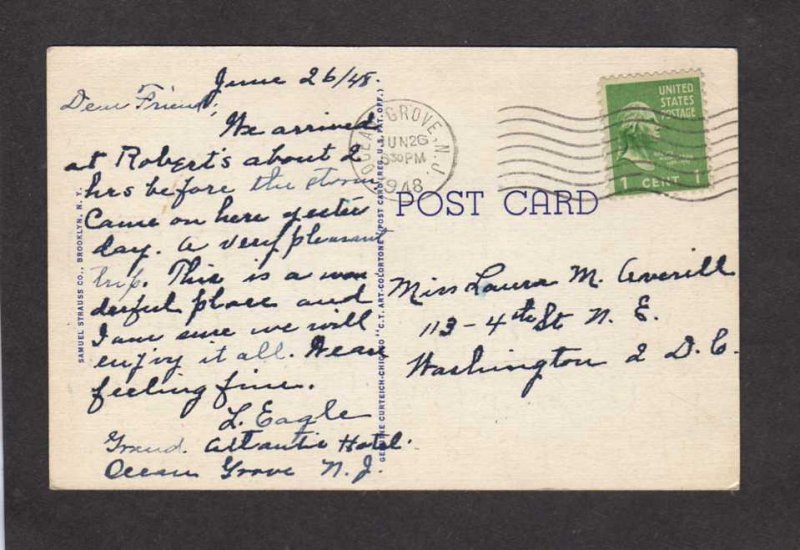 June 26/48.
Dear Friend,
We arrived
at Robert's about 2
hrs before the storm
Came on here yester
day. A very pleasant
trip. This is a won
derful place and
I am sure we will
enjoy it all. We are
feeling fine.
L. Eagle
Grand Atlantic Hotel.
Ocean Grove N.J.
SAMUEL STRAUSS CO., BROOKLYN, N. Y.
GENUINE CURTEICH-CHICAGO "C.T. ART-COLORTONE" POST CARD (REG. U.S. PAT. OFF.)
OCEAN GROVE, N.J.
JUN 26
630 PM
1948
UNITED
STATES
POSTAGE
1 CENT 1
POST CARD
Miss Laura M. Averill
113-4th St N. E.
Washington 2 D.C.